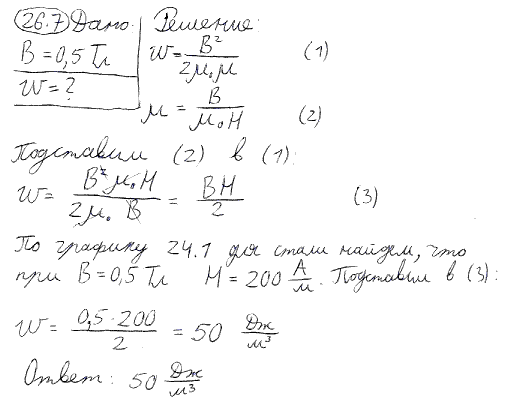 26.7 Дано: Решение:
B = 0,5 Тл w = B² / 2μ₀μ (1)
w = ?
μ = B / μ₀H (2)
Подставим (2) в (1):
w = B² μ₀ H / 2μ₀ B = BH / 2 (3)
По графику 24.1 для стали найдем, что
при B = 0,5 Тл H = 200 А/м. Подставим в (3):
w = 0,5 · 200 / 2 = 50 Дж/м³
Ответ: 50 Дж/м³